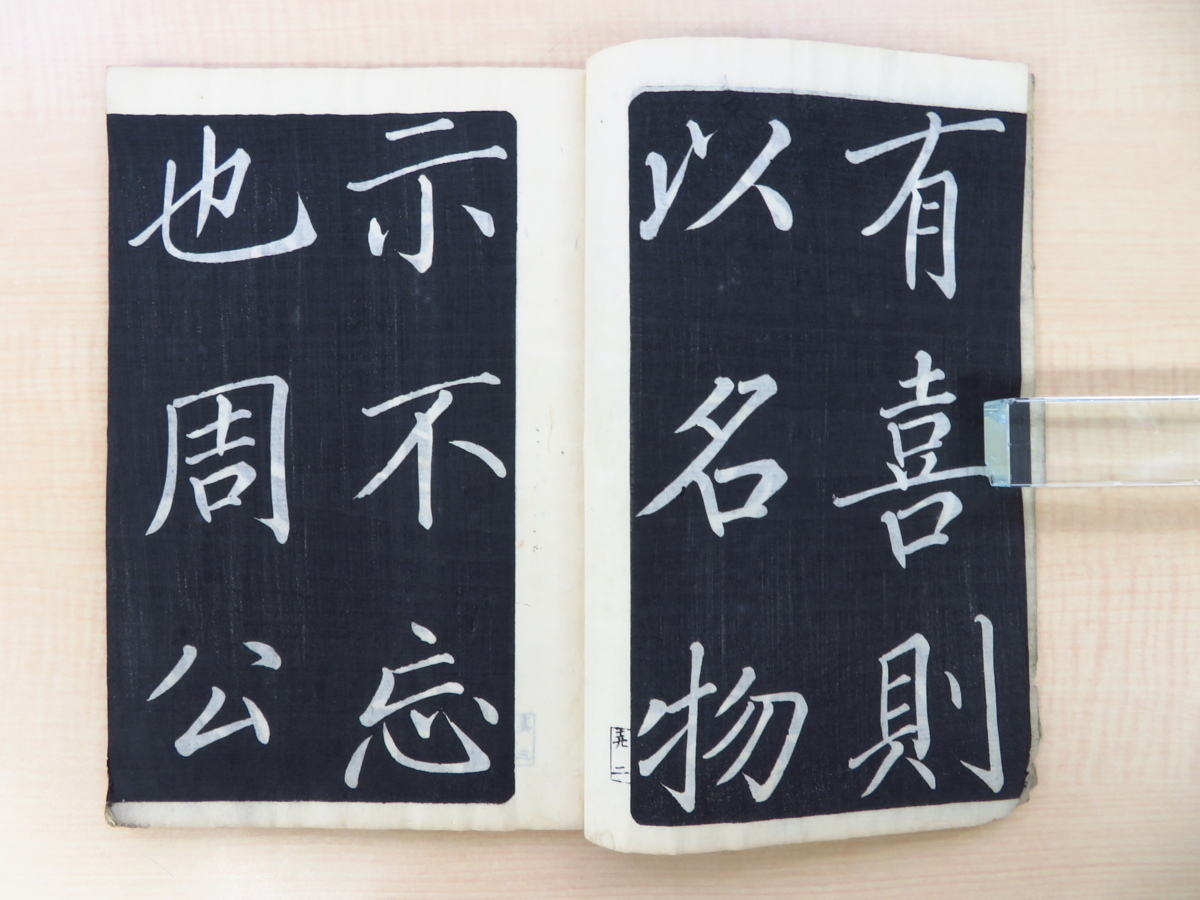 有喜則
以名物
示不忘
也周公
二